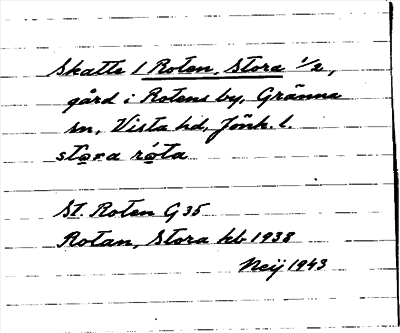 Skatte 1 Roten, Stora 1/2,
gård i Rotens by, Gränna
sn, Vista hd, Jönk. l.
stora róta
St. Roten G 35
Rotan, Stora kb 1938
Neij 1943